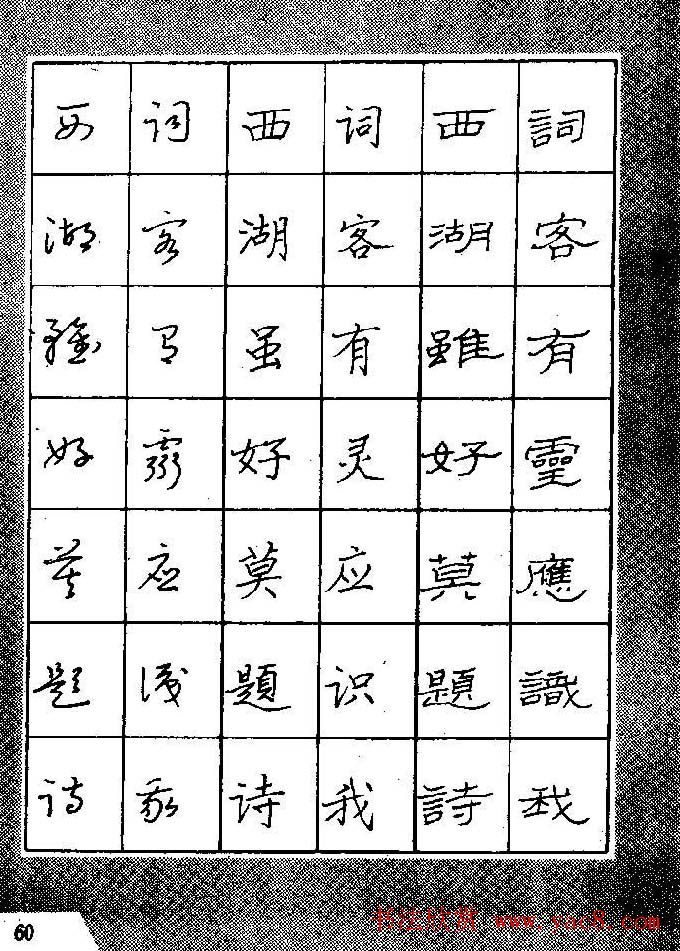 詞客有靈應識我
西湖雖好莫題詩
词客有灵应识我
西湖虽好莫題诗
词客有靈应識我
西湖雖好莫题诗
60
书法欣赏 www.yac8.com